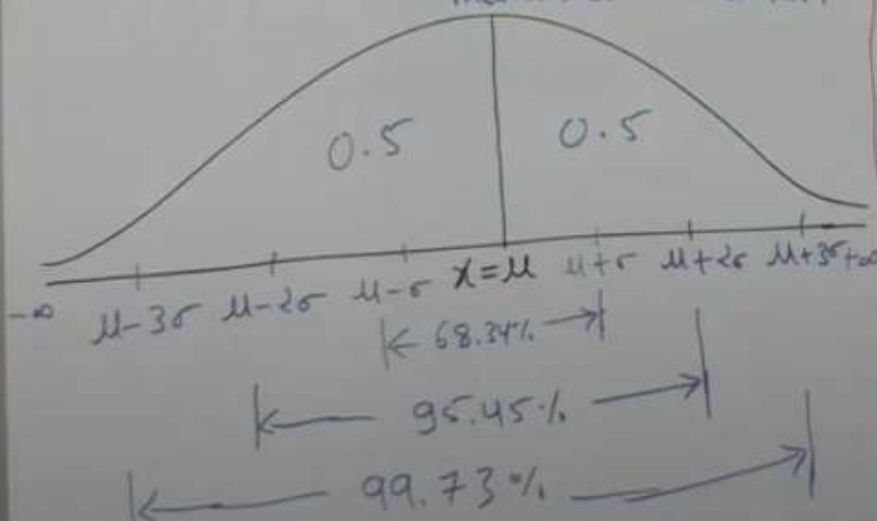 0.5 0.5
-∞ μ-3σ μ-2σ μ-σ x=μ μ+σ μ+2σ μ+3σ +∞
68.34%
95.45%
99.73%